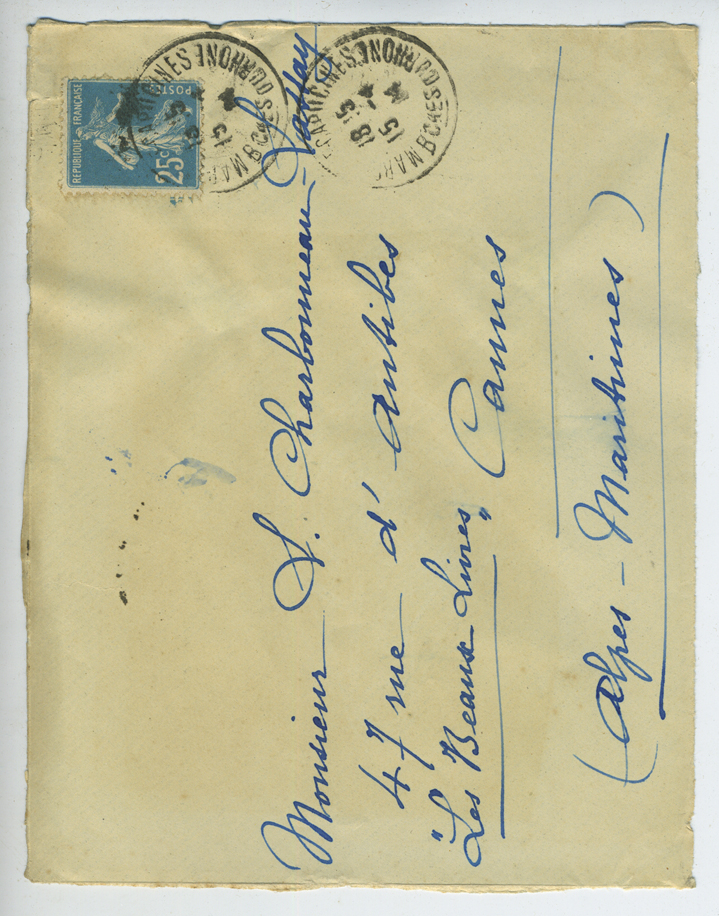 REPUBLIQUE FRANÇAISE
POSTES
25c
CAPUCINES
Bches DU RHONE
15
CAPUCINES
Bches DU RHONE
18 15
15
Monsieur L. Charbonneau-Lassay
47 rue d'Antibes
"Les Beaux Livres" Cannes
(Alpes-Maritimes)